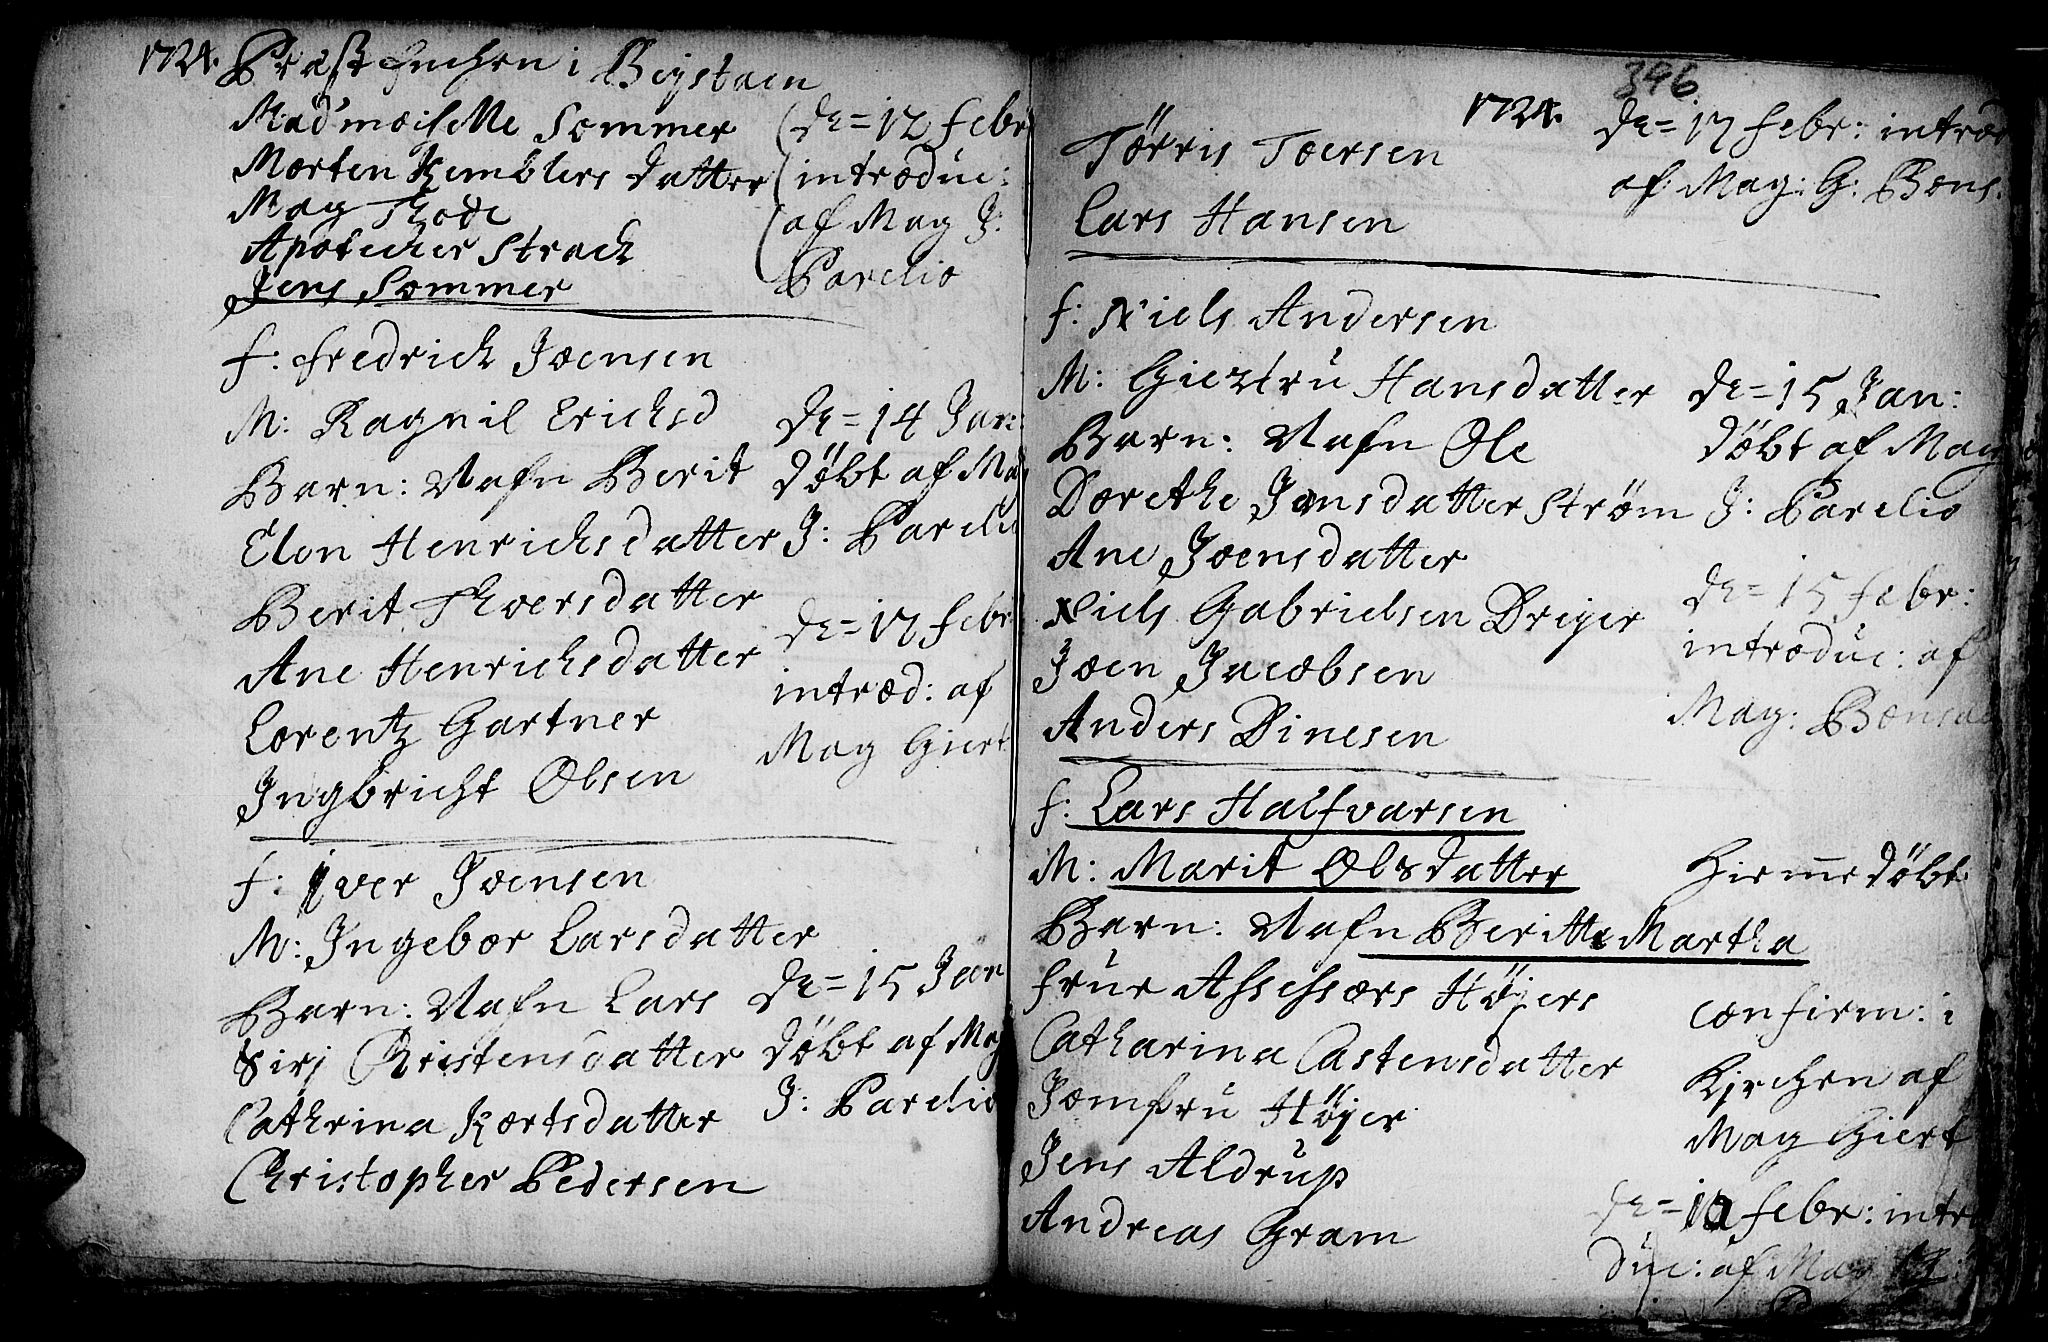 1724.
Præstenchen i Beÿstaen
Mad'moiselle Sommer
Morten Kemblers datter
Mag Thode
Apotecher Strach
Jens Sommer
de= 12 febr
introduc:
af Mag J:
Parelio
f: fredrich Joensen
M: Ragnil Erichsd
Barn: Nafn Berit
Elen Henrichsdatter
Berit Thorsdatter
Ane Henrichsdatter
Lorentz Gartner
Ingbricht Olsen
de= 14 Jan:
døbt af Ma
J: Pareli
de= 17 febr
introd: af
Mag Giert
f: Iver Joensen
M: Ingebor Larsdatter
Barn: Nafn Lars
Sirj Christensdatter
Cathrina Kortsdatter
Christopher Pedersen
de= 15 Jan
døbt af Mag
J: Parelio
396
1724.
Tørris Toersen
Lars Hansen
de= 17 febr: introd
af Mag: G: Bons.
f: Niels Andersen
M: Giertru Hansdatter
Barn: Nafn Ole
Dorethe Jensdatter Strøm
Ane Joensdatter
Niels Gabrielsen Dreyer
Joen Jacobsen
Anders Dinesen
de= 15 Jan:
døbt af Mag
J: Parelio
de= 15 febr:
introduc: af
Mag: Bonsac
f: Lars Halfvarsen
M: Marit Olsdatter
Barn: Nafn Beritte Martha
frue Assessors Høÿers
Catharina Castensdatter
Jomfru Høÿer
Jens Aldrup
Andreas Gram
hiemmedøbt
confirm: i
Kirchen af
Mag Giert
febr: intro
duc: af Mag